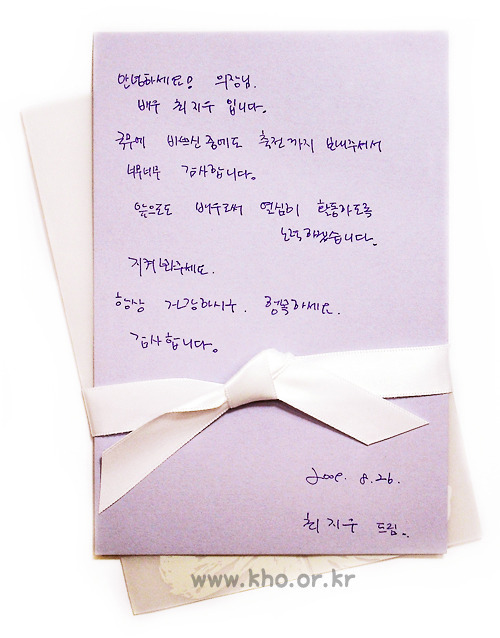 안녕하세요? 의장님.
배우 최지우 입니다.
국무에 바쁘신 중에도 축전까지 보내주셔서
너무너무 감사합니다.
앞으로도 배우로써 열심히 활동하도록
노력하겠습니다.
지켜봐주세요.
항상 건강하시구. 행복하세요.
감사합니다.
8.26.
최지우 드림.
www.kho.or.kr